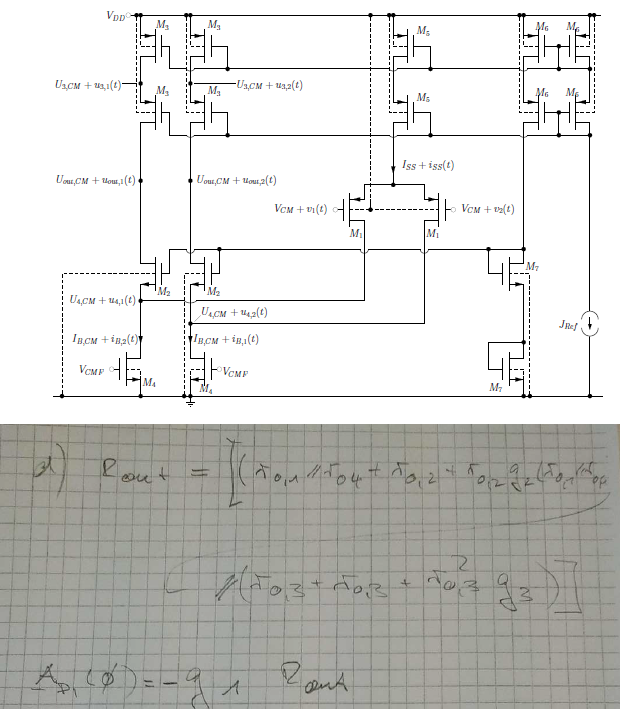 V_DD
M_3 M_3 M_5 M_6 M_6
U_{3,CM} + u_{3,1}(t) U_{3,CM} + u_{3,2}(t)
M_3 M_3 M_5 M_6 M_6
I_{SS} + i_{SS}(t)
U_{out,CM} + u_{out,1}(t) U_{out,CM} + u_{out,2}(t)
V_{CM} + v_1(t) V_{CM} + v_2(t)
M_1 M_1
M_2 M_2 M_7
U_{4,CM} + u_{4,1}(t)
U_{4,CM} + u_{4,2}(t)
J_{Ref}
I_{B,CM} + i_{B,2}(t) I_{B,CM} + i_{B,1}(t)
V_{CMF} V_{CMF}
M_4 M_4 M_7
d) R_out = [(r_{0,1} // r_{04} + r_{0,2} + r_{0,2} g_2 (r_{0,1} // r_{04}
// (r_{0,3} + r_{0,3} + r_{0,3}^2 g_3)]
A_{D1}(ϕ) = - g_1 R_out